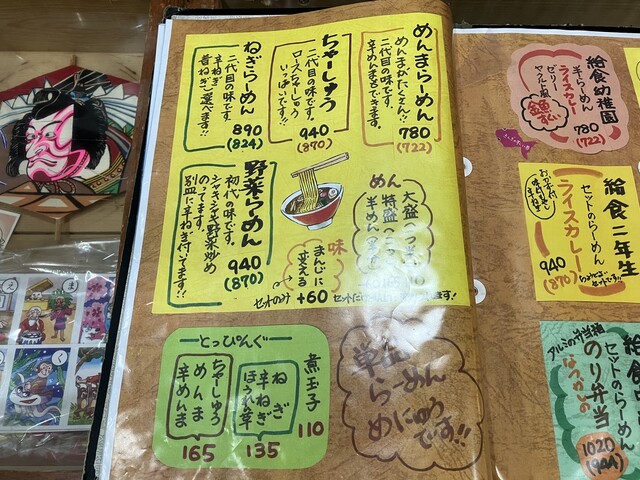 めんまらーめん
二代目の味です。
めんまがたくさん!!
辛めんまもできます。
780
(722)
ちゃーしゅう
二代目の味です。
ロースちゃーしゅう
いっぱいです。
940
(870)
ねぎらーめん
二代目の味です。
辛ねぎ
昔ねぎ 選べます!!
890
(824)
野菜らーめん
初代の味です。
シャキシャキ野菜炒め
のってます。
別皿に辛ねぎ付いてます!!
940
(870)
めん
大盛
特盛
半めん
味
まんじに
変える
セットのみ +60
とっぴんぐ
煮玉子
110
ねぎ
辛ねぎ
ほうれん草
135
ちゃーしゅう
めんま
辛めんま
165
単品
らーめん
めにゅう
です!!
給食幼稚園
半らーめん
ライスカレー
ゼリー
ヤクルト風
780
(722)
給食二年生
セットのらーめん
ライスカレー
940
(870)
給食
セットのらーめん
のり弁当
アルミの弁当箱
なつかしの
1020
(944)
え
ま